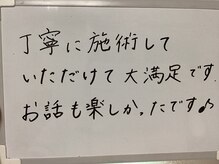 丁寧に施術して
いただけて大満足です
お話も楽しかったです♪